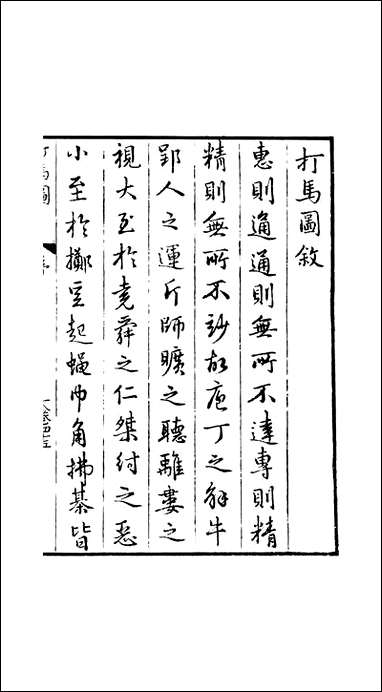 打馬圖敘
惠則通通則無所不達專則精
精則無所不妙故庖丁之解牛
郢人之運斤師曠之聽離婁之
視大至於堯舜之仁桀紂之惡
小至於擲豆起蠅巾角拂棊皆
打馬圖